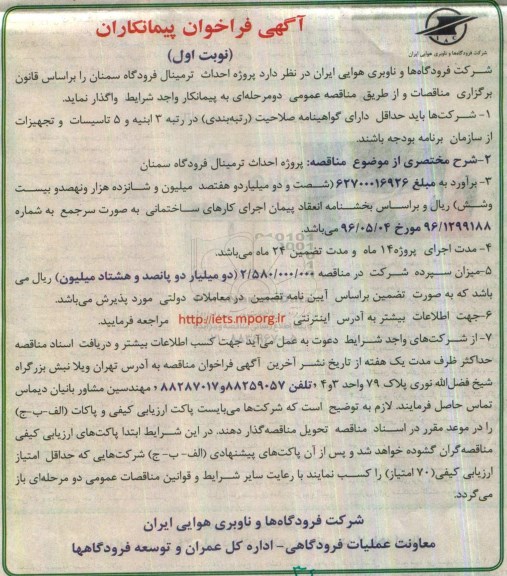 آگهی فراخوان پیمانکاران
(نوبت اول)
شرکت فرودگاه‌ها و ناوبری هوایی ایران
شرکت فرودگاه‌ها و ناوبری هوایی ایران در نظر دارد پروژه احداث ترمینال فرودگاه سمنان را براساس قانون
برگزاری مناقصات و از طریق مناقصه عمومی دومرحله‌ای به پیمانکار واجد شرایط واگذار نماید.
۱- شرکت‌ها باید حداقل دارای گواهینامه صلاحیت (رتبه‌بندی) در رتبه ۳ ابنیه و ۵ تاسیسات و تجهیزات
از سازمان برنامه بودجه باشند.
۲-شرح مختصری از موضوع مناقصه: پروژه احداث ترمینال فرودگاه سمنان
۳- برآورد به مبلغ ۶۲۷۰۰۰۱۶۹۲۶ (شصت و دو میلیاردو هفتصد میلیون و شانزده هزار ونهصدو بیست
وشش) ریال و براساس بخشنامه انعقاد پیمان اجرای کارهای ساختمانی به صورت سرجمع به شماره
۹۶/۱۲۹۹۱۸۸ مورخ ۹۶/۰۵/۰۴ می‌باشد.
۴- مدت اجرای پروژه ۱۴ ماه و مدت تضمین ۲۴ ماه می‌باشد.
۵-میزان سپرده شرکت در مناقصه ۲/۵۸۰/۰۰۰/۰۰۰ (دو میلیار دو پانصد و هشتاد میلیون) ریال می
باشد که به صورت تضمین براساس آیین نامه تضمین در معاملات دولتی مورد پذیرش می‌باشد.
۶-جهت اطلاعات بیشتر به آدرس اینترنتی http://iets.mporg.ir مراجعه فرمایید.
۷- از شرکت‌های واجد شرایط دعوت به عمل می‌آید جهت کسب اطلاعات بیشتر و دریافت اسناد مناقصه
حداکثر ظرف مدت یک هفته از تاریخ نشر آخرین آگهی فراخوان مناقصه به آدرس تهران ویلا نبش بزرگراه
شیخ فضل‌الله نوری پلاک ۷۹ واحد ۳و۴ ، تلفن ۸۸۲۵۹۰۵۷و۸۸۲۸۷۰۱۷ ، مهندسین مشاور بانیان دیماس
تماس حاصل فرمایند. لازم به توضیح است که شرکت‌ها می‌بایست پاکت ارزیابی کیفی و پاکات (الف-ب-ج)
را در موعد مقرر در اسناد مناقصه تحویل مناقصه‌گذار دهند. در این شرایط ابتدا پاکت‌های ارزیابی کیفی
مناقصه‌گران گشوده خواهد شد و پس از آن پاکت‌های پیشنهادی (الف-ب-ج) شرکت‌هایی که حداقل امتیاز
ارزیابی کیفی(۷۰ امتیاز) را کسب نمایند با رعایت سایر شرایط و قوانین مناقصات عمومی دو مرحله‌ای باز
می‌گردد.
شرکت فرودگاه‌ها و ناوبری هوایی ایران
معاونت عملیات فرودگاهی- اداره کل عمران و توسعه فرودگاهها